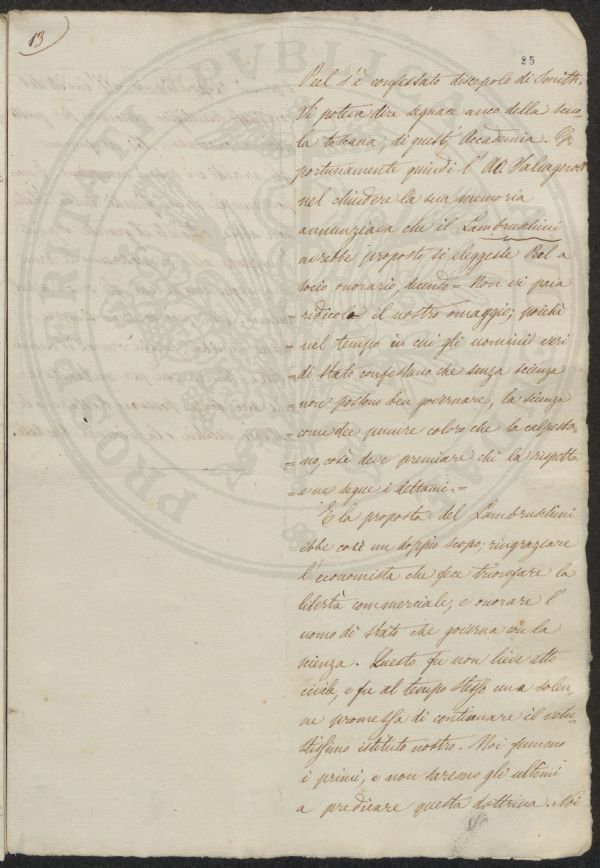 13
25
Peel s'è confessato discepolo di Smith.
Si poteva dire seguace anco della scuo-
la toscana, di quest'Accademia. Op-
portunamente quindi l'Av. Salvagnoli
nel chiudere la sua memoria
annunziava che il Lambruschini
avrebbe proposto, si eleggesse Peel a
socio onorario, dicendo = Non vi paia
= ridicolo il nostro omaggio; poichè
= nel tempo in cui gli uomini veri
= di Stato confessano che senza scienza
= non possono ben governare, la scienza
= come dee punire coloro che la calpesta-
= no, così deve premiare chi la rispetta
= e ne segue i dettami. =
E la proposta del Lambruschini
ebbe così un doppio scopo; ringraziare
l'economista che fece trionfare la
libertà commerciale, e onorare l'
uomo di Stato che governa con la
scienza. Questo fu non lieve atto
civile, e fu al tempo stesso una solen-
ne promessa di continuare il vetu-
stissimo istituto nostro. Noi fummo
i primi, e non saremo gli ultimi
a predicare questa dottrina. Noi
PROSPERITATI PUBLICAE